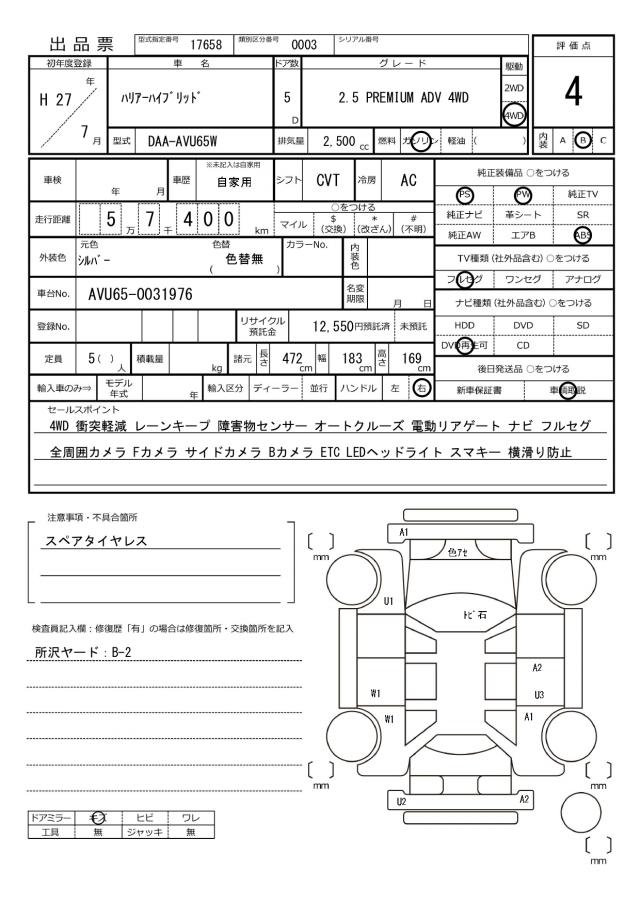 出品票 型式指定番号 17658 類別区分番号 0003 シリアル番号
評価点
4
初年度登録 車名 ドア数 グレード 駆動
H 27 年 7 月 ﾊﾘｱｰﾊｲﾌﾞﾘｯﾄﾞ 5 D 2.5 PREMIUM ADV 4WD 2WD 4WD
型式 DAA-AVU65W 排気量 2,500 cc 燃料 ガソリン 軽油 ( ) 内装 A B C
車検 年 月 車歴 ※未記入は自家用 自家用 シフト CVT 冷房 AC
走行距離 5 7 4 0 0 万 千 km ○をつける
マイル $ (交換) * (改ざん) # (不明)
外装色 元色 ｼﾙﾊﾞｰ 色替 ( 色替無 ) カラーNo. 内装色
車台No. AVU65-0031976 名変期限 月 日
登録No. リサイクル預託金 12,550円預託済 未預託
定員 5 ( ) 人 積載量 kg 諸元 長さ 472 cm 幅 183 cm 高さ 169 cm
輸入車のみ⇒ モデル年式 年 輸入区分 ディーラー 並行 ハンドル 左 右
純正装備品 ○をつける
PS PW 純正TV
純正ナビ 革シート SR
純正AW エアB ABS
TV種類 (社外品含む) ○をつける
フルセグ ワンセグ アナログ
ナビ種類 (社外品含む) ○をつける
HDD DVD SD
DVD再生可 CD
後日発送品 ○をつける
新車保証書 車輌取説
セールスポイント
4WD 衝突軽減 レーンキープ 障害物センサー オートクルーズ 電動リアゲート ナビ フルセグ
全周囲カメラ Fカメラ サイドカメラ Bカメラ ETC LEDヘッドライト スマキー 横滑り防止
注意事項・不具合箇所
スペアタイヤレス
検査員記入欄：修復歴「有」の場合は修復箇所・交換箇所を記入
所沢ヤード：B-2
ドアミラー キズ ヒビ ワレ
工具 無 ジャッキ 無
A1
色ｱｾ
mm mm
U1
ﾄﾋﾞ石
A2
W1 U3
W1 A1
mm mm
U2 A2
mm